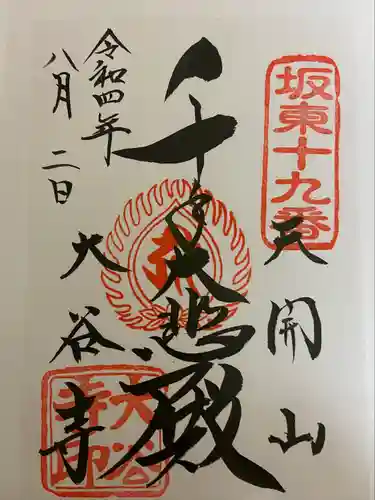 坂東十九番
天開山
千手大悲殿
大谷寺
大谷寺印
令和四年
八月二日